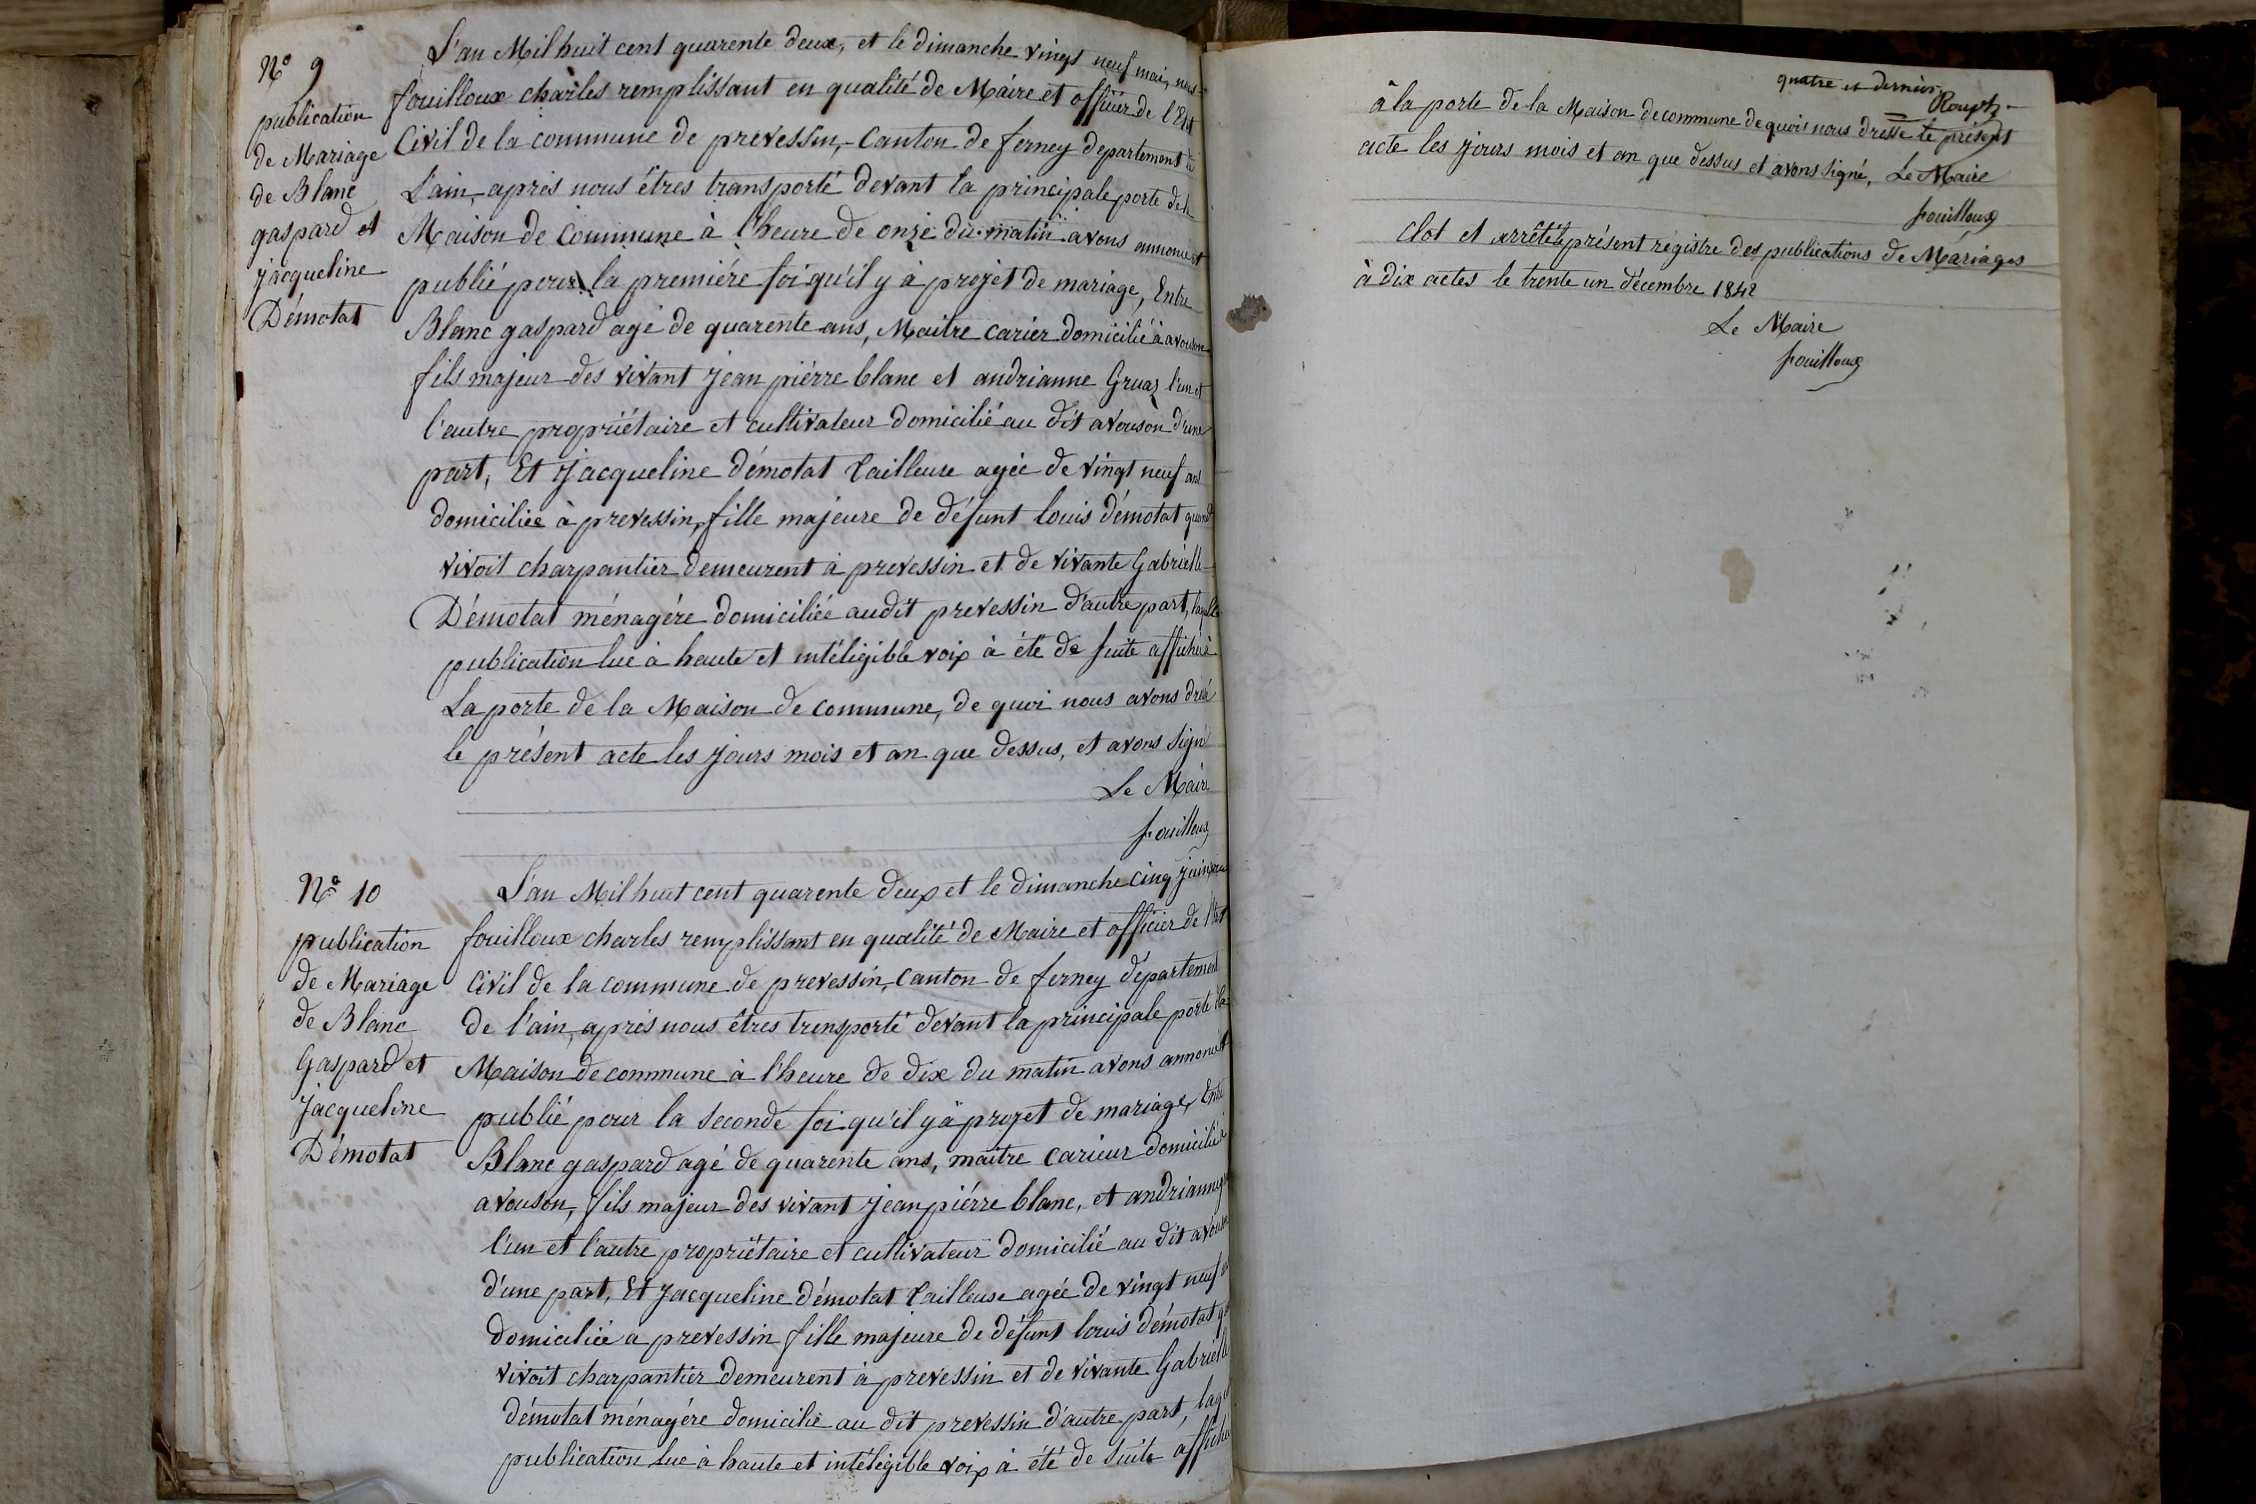 Nº 9
publication
de Mariage
de Blanc
gaspard et
jacqueline
Démotat
L'an Mil huit cent quarente deux, et le dimanche vingt neuf mai, nous
fouilloux charles remplissant en qualité de Maire et officier de l'Etat
Civil de la commune de prevessin, Canton de ferney departement de
L'ain, aprés nous êtres transporté devant la principale porte de la
Maison de Commune à l'heure de onze du matin avons annoncé et
publié pour la premiére foi qu'il y à projet de mariage, Entre
Blanc gaspard agé de quarente ans, Maitre carier domicilié à avouson
fils majeur des vivant jean piérre blanc et andrianne Gruaz l'un et
l'autre propriétaire et cultivateur domicilié au dit avouson d'une
part, Et jacqueline démotat tailleuse agée de vingt neuf ans
domiciliée à prevessin, fille majeure de défunt louis démotat quand
vivoit charpantier demeurent à prevessin et de vivante Gabriélle
Démotat ménagére domiciliée audit prevessin d'autre part, laquelle
publication lue à haute et intéligible voix à été de suite affiché à
La porte de la Maison de commune, de quoi nous avons dressé
le présent acte les jours mois et an que dessus, et avons signé
Le Maire
fouilloux
Nº 10
publication
de Mariage
de Blanc
Gaspard et
jacqueline
Démotat
L'an Mil huit cent quarente deux et le dimanche cinq juin nous
fouilloux charles remplissant en qualité de Maire et officier de l'état
Civil de la commune de prevessin, Canton de ferney département
de l'ain, aprés nous êtres transporté devant la principale porte de la
Maison de commune à l'heure de dix du matin avons annoncé et
publié pour la seconde foi qu'il y à projet de mariage, Entre
Blanc gaspard agé de quarente ans, maitre carieur domicilié à
avouson, fils majeur des vivant jean piérre blanc, et andrianne
l'un et l'autre propriétaire et cultivateur domicilié au dit avouson
d'une part, Et jacqueline démotat tailleuse agée de vingt neuf
domiciliée à prevessin fille majeure de défunt louis démotat
vivoit charpantier demeurent à prevessin et de vivante Gabriélle
démotat ménagére domicilié au dit prevessin d'autre part,
publication lue à haute et intéligible voix à été de suite affiché
quatre et dernier
à la porte de la Maison de commune de quoi nous dressé le présent
acte les jours mois et an que dessus et avons signé, Le Maire
fouilloux
Clot et arrêté le présent régistre des publications de Mariages
à dix actes le trente un décembre 1842
Le Maire
fouilloux